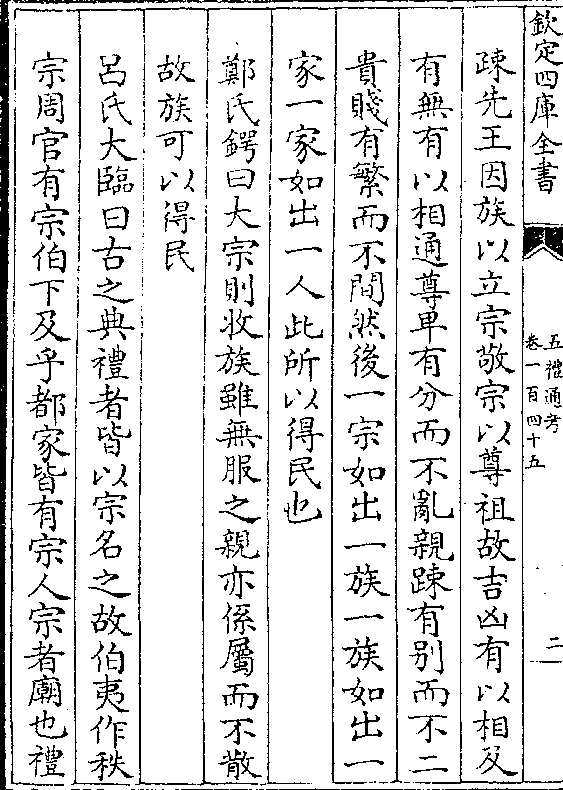 欽定四庫全書
五禮通考
卷一百四十五
二
疎先王因族以立宗敬宗以尊祖故吉凶有以相及
有無有以相通尊卑有分而不亂親踈有别而不二
貴賤有繁而不間然後一宗如出一族一族如出一
家一家如出一人此所以得民也
鄭氏鍔曰大宗則收族雖無服之親亦係屬而不散
故族可以得民
吕氏大臨曰古之典禮者皆以宗名之故伯夷作秩
宗周官有宗伯下及乎都家皆有宗人宗者廟也禮